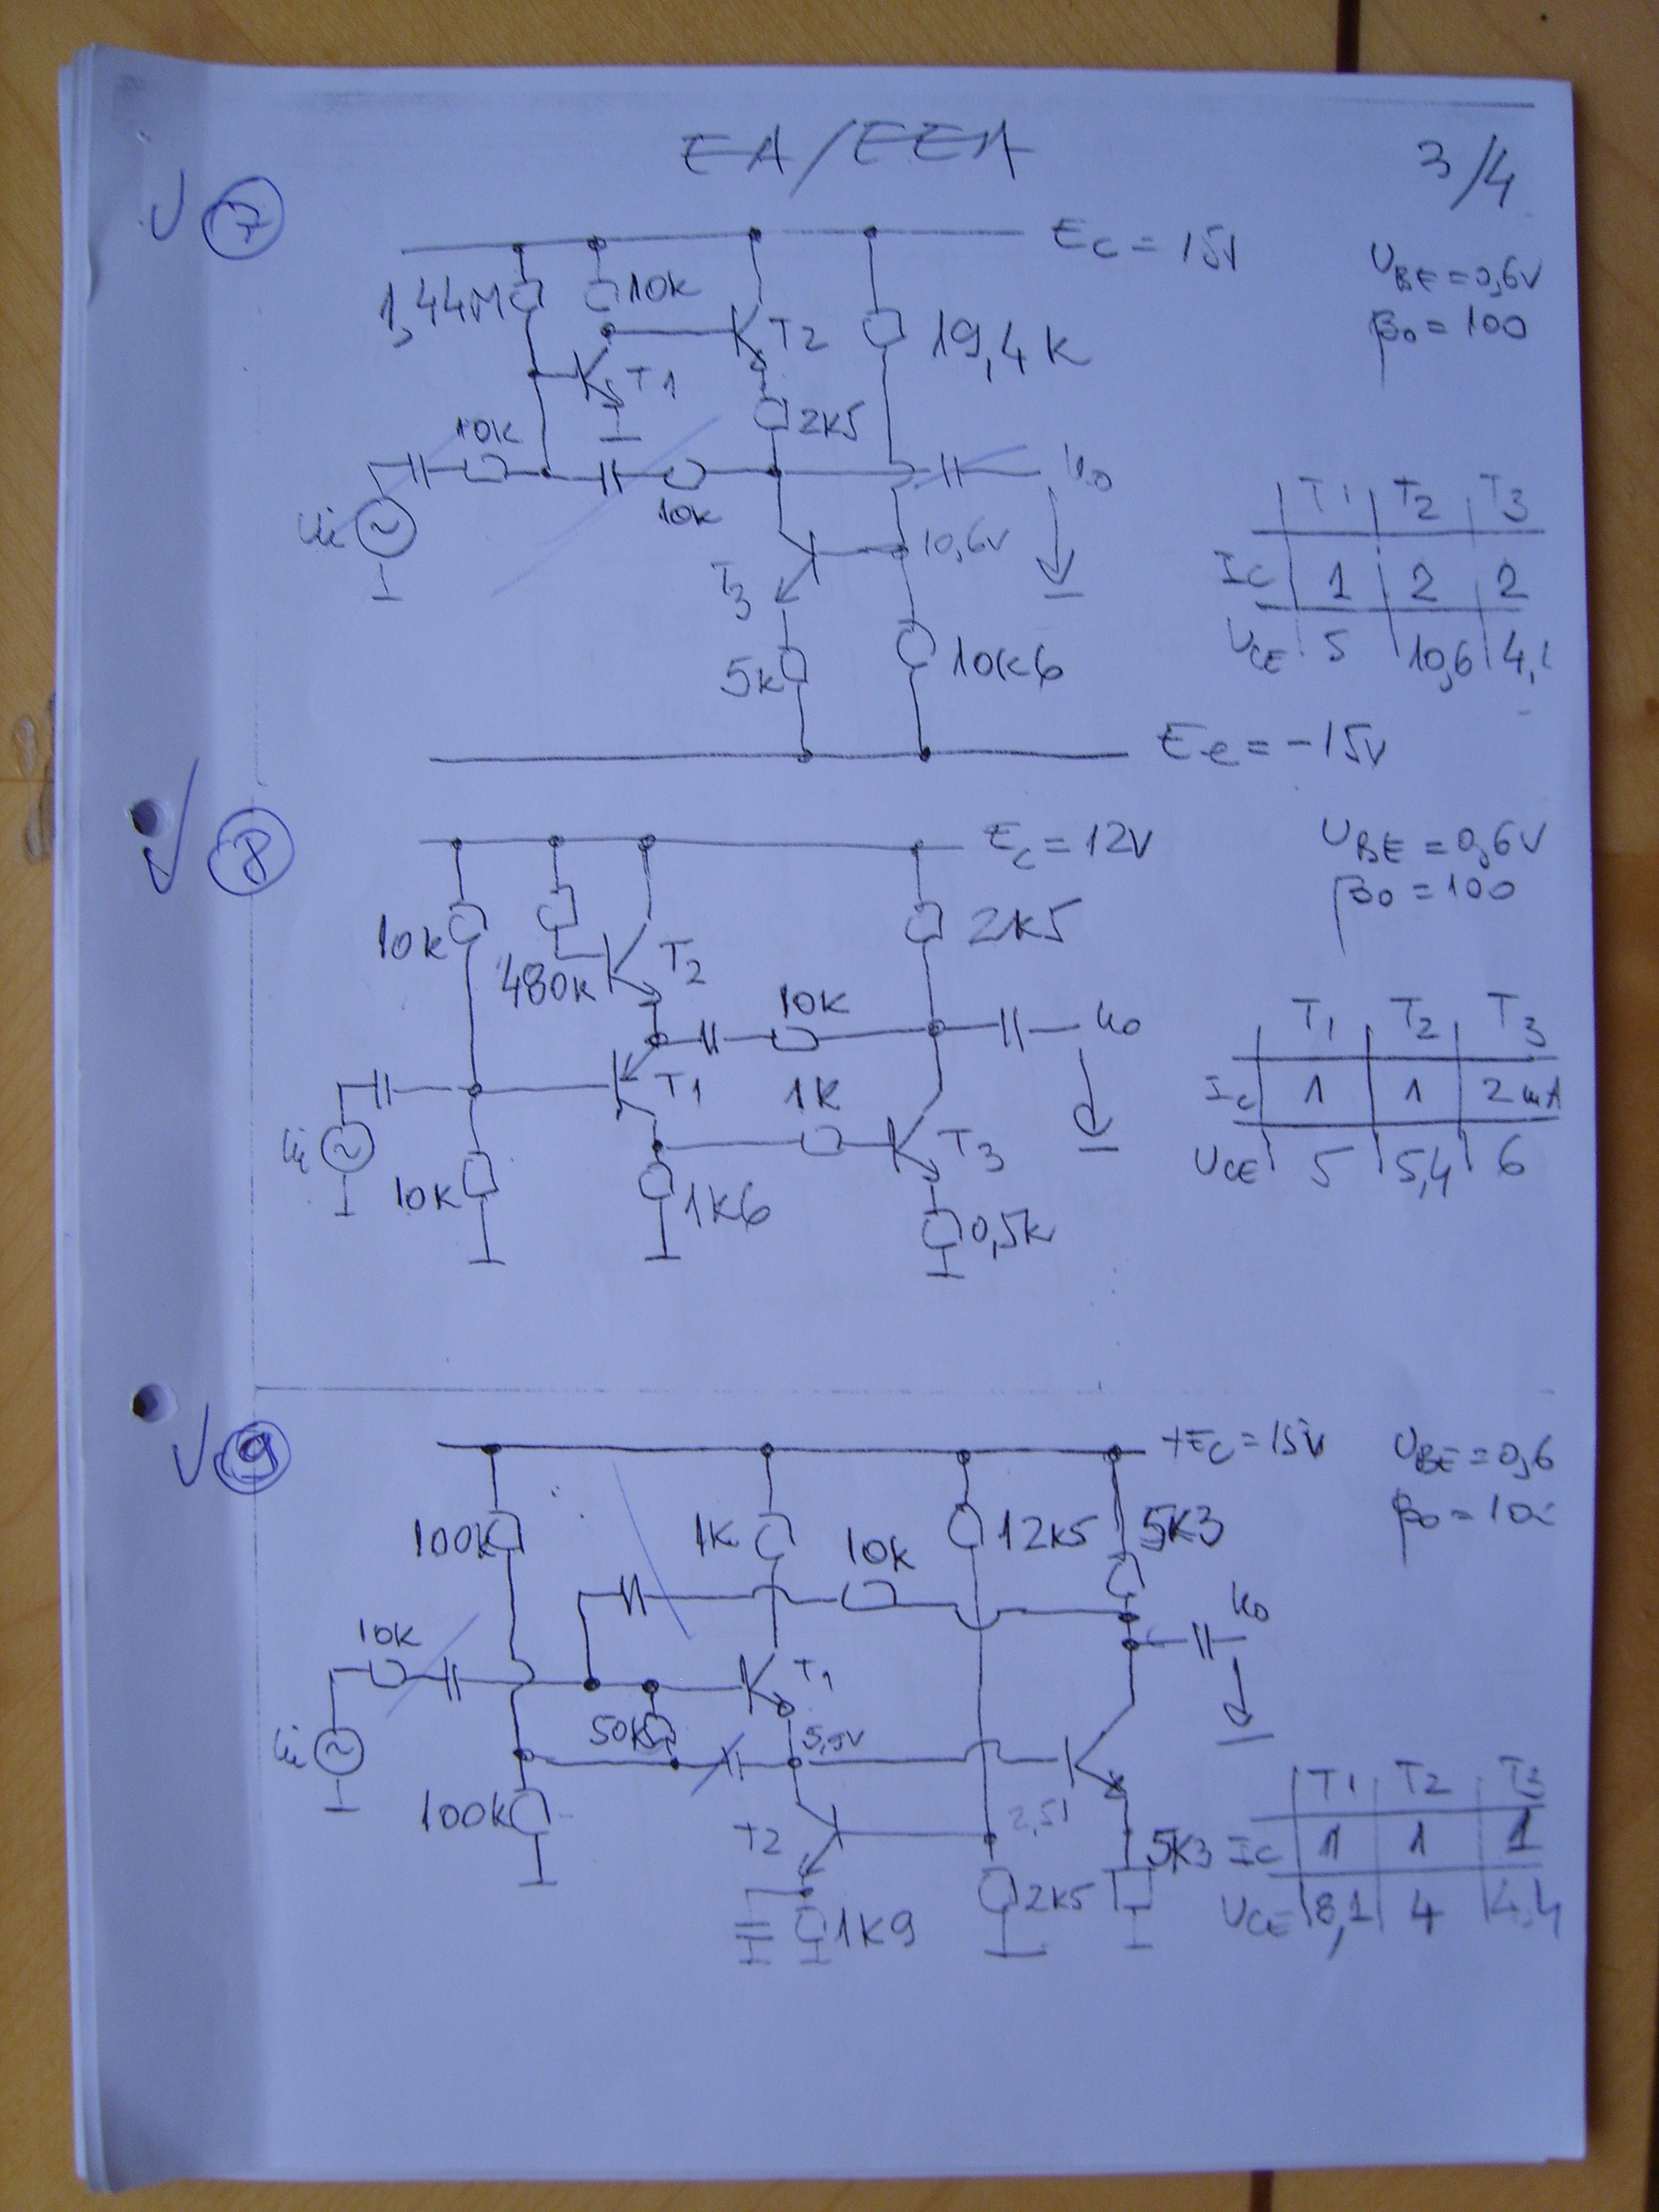 EA/EEA
3/4
7
Ec = 15V
UBE = 0,6V
β0 = 100
1,44M
10k
T2
19,4K
T1
2K5
10K
10K
u0
ui
10,6V
T3
5K
10K6
T1 T2 T3
Ic 1 2 2
UCE 5 10,6
Ee = -15V
8
Ec = 12V
UBE = 0,6V
β0 = 100
10K
480K
T2
2K5
10K
u0
T1
1K
ui
T3
10K
1K6
0,5K
T1 T2 T3
Ic 1 1 2mA
UCE 5 5,4 6
9
+Ec = 15V
UBE = 0,6
100K
1K
10K
12K5
5K3
u0
10K
T1
50K
ui
100K
T2
2K5
5K3
1K9
T1 T2 T3
Ic 1 1 1
UCE 8,1 4 4,4